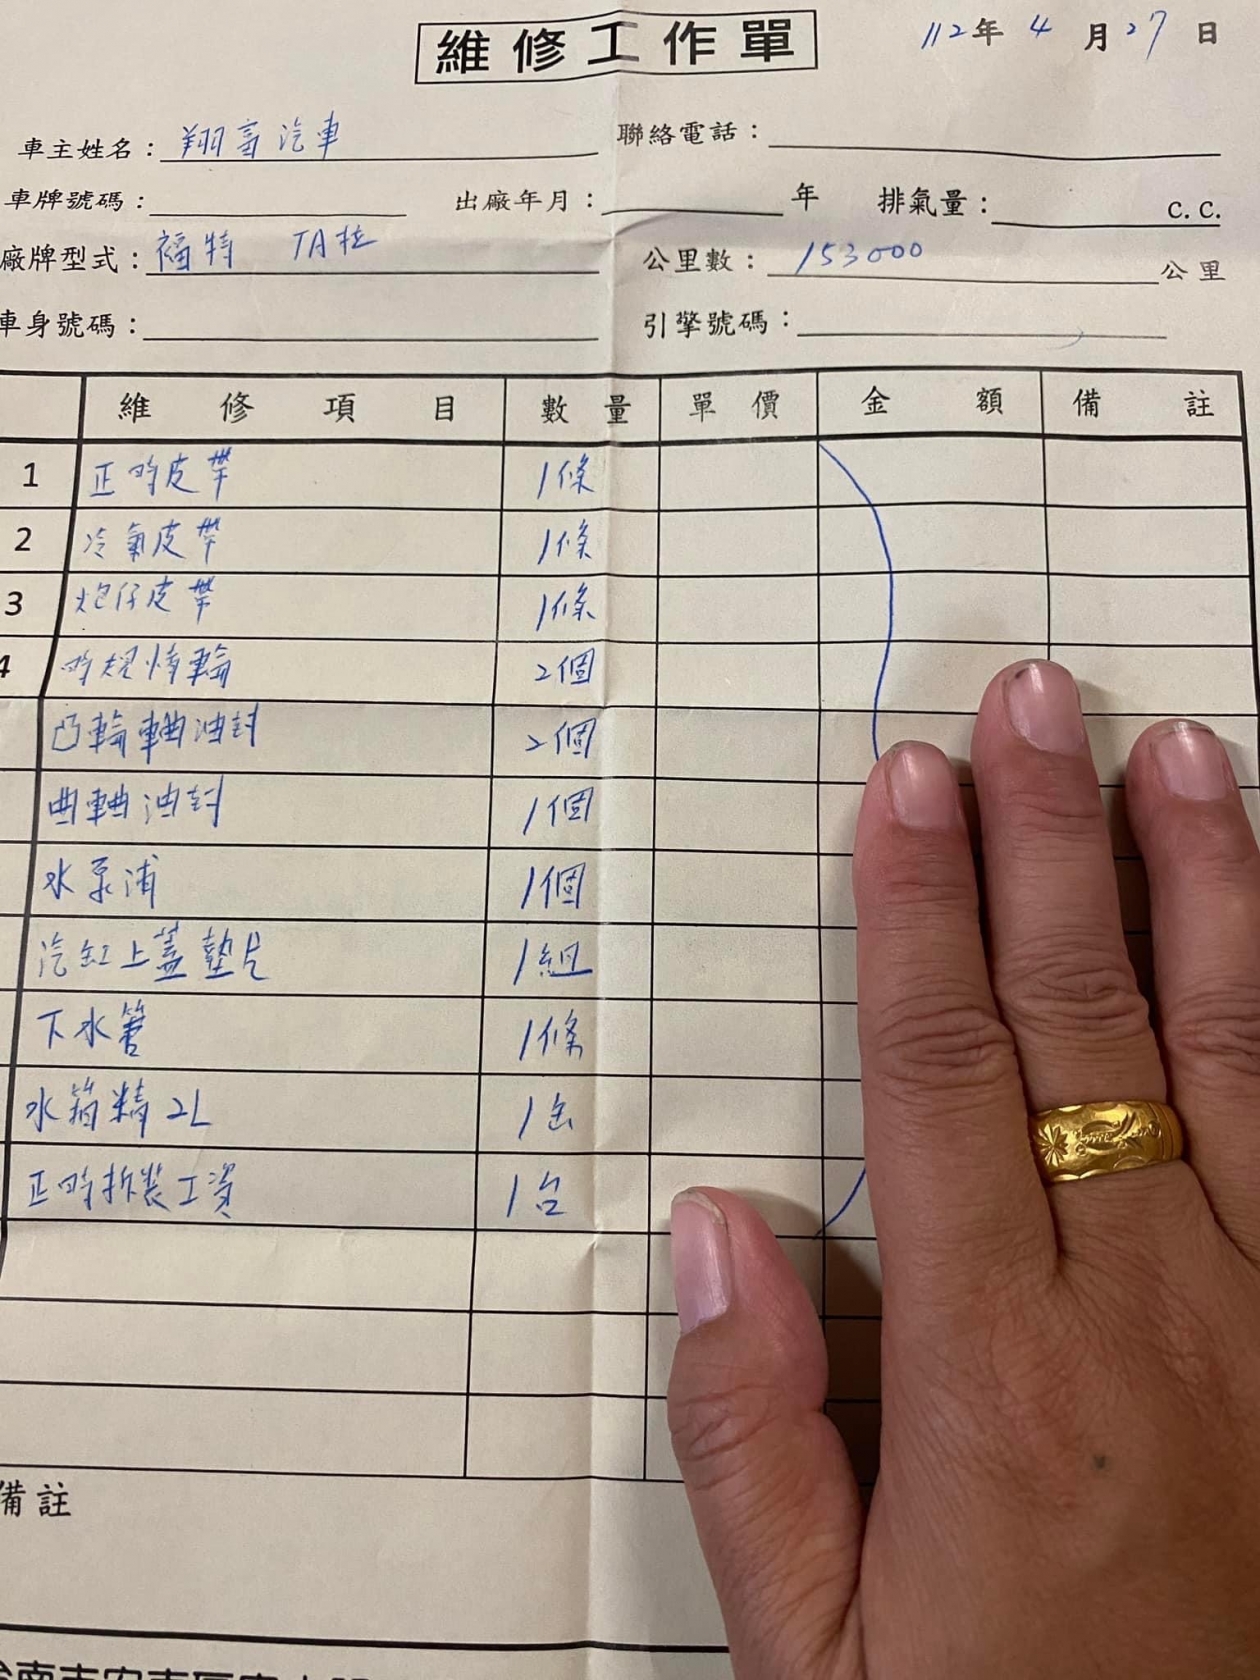 維修工作單 112年 4 月 27 日
車主姓名：翔富汽車 聯絡電話：
車牌號碼： 出廠年月： 年 排氣量： C.C.
廠牌型式：福特 TA柱 公里數：153000 公里
車身號碼： 引擎號碼：
維修項目 數量 單價 金額 備註
1 正時皮帶 1條
2 冷氣皮帶 1條
3 炮仔皮帶 1條
4 時規惰輪 2個
凸輪軸油封 2個
曲軸油封 1個
水泵浦 1個
汽缸上蓋墊片 1組
下水管 1條
水箱精 2L 1缶
正時拆裝工資 1台
備註